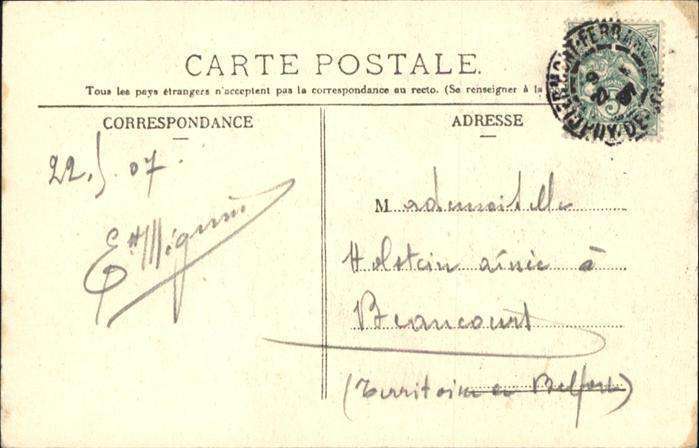 CARTE POSTALE.
Tous les pays étrangers n'acceptent pas la correspondance au recto. (Se renseigner à la
CORRESPONDANCE
ADRESSE
22.5.07.
Mademoiselle
Holstein aînée à
Beaucourt
(Territoire de Belfort)
CLERMONT-FERRAND
PUY-DE-DOME
5